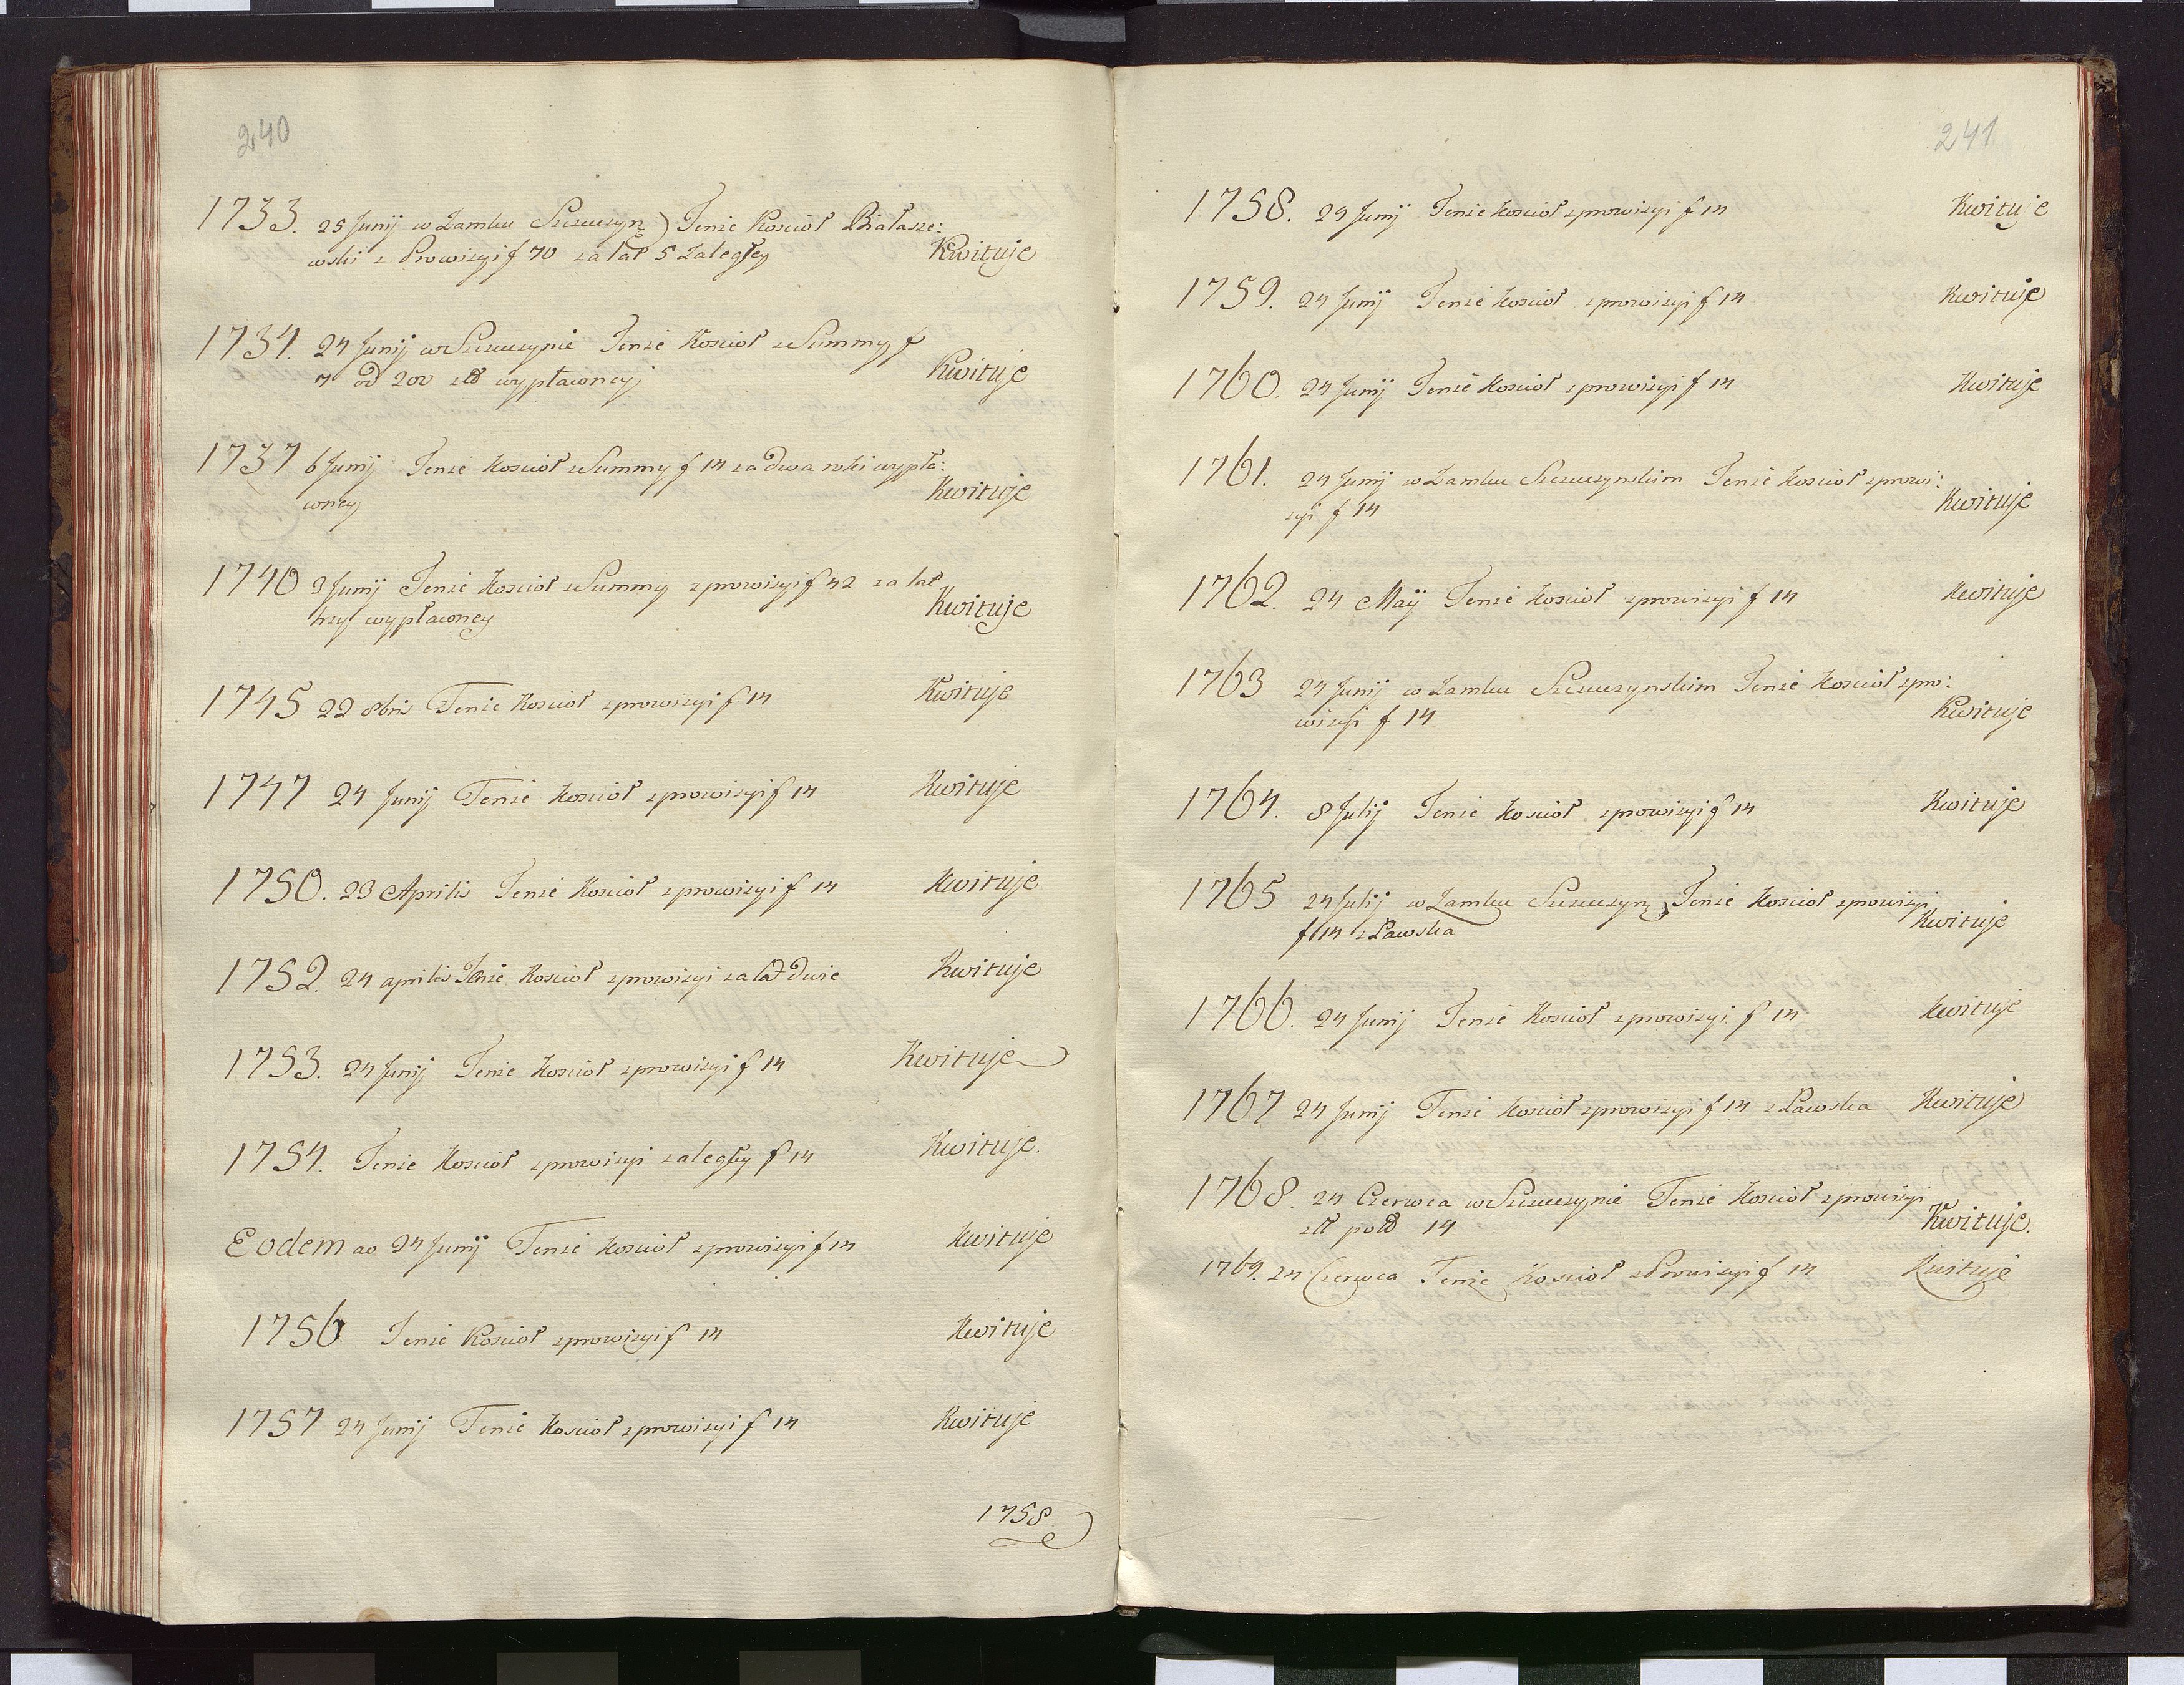 240
1733. 25 Junij w Zamku Szczuczyn) Tenże Kościoł Białasze:
wski z Prowizyi f 70 za lat 5 zaległey Kwituje
1734. 24 Junij w Szczuczynie Tenże Kościoł z Summy f
7 od 200 zł wypłaconeyj Kwituje
1737 6 Junij Tenże Kościoł z Summy f 14 za dwa roki wypła:
coney Kwituje
1740 3 Junij Tenże Kościoł z Summy z prowizyi f 42 za lat
trzy wypłaconey Kwituje
1745 22 8bris Tenże Kościoł z prowizyi f 14 Kwituje
1747 24 Junij Tenże Kościoł z prowizyi f 14 Kwituje
1750. 23 Aprilis Tenże Kościoł z prowizyi f 14 Kwituje
1752. 24 aprilis Tenże Kościoł z prowizyi za lat dwie Kwituje
1753. 24 Junij Tenże Kościoł z prowizyi f 14 Kwituje
1754. Tenże Kościoł z prowizyi zaległey f 14 Kwituje.
Eodem ao 24 Junij Tenże Kościoł z prowizyi f 14 Kwituje
1756 Tenże Kościoł z prowizyi f 14 Kwituje
1757 24 Junij Tenże Kościoł z prowizyi f 14 Kwituje
1758
241
1758. 29 Junij Tenże Kościoł z prowizyi f 14 Kwituje
1759. 24 Junij Tenże Kościoł z prowizyi f 14 Kwituje
1760. 24 Junij Tenże Kościoł z prowizyi f 14 Kwituje
1761. 24 Junij w Zamku Szczuczynskim Tenże Kościoł z prowi:
zyi f 14 Kwituje
1762. 24 Maij Tenże Kościoł z prowizyi f 14 Kwituje
1763 24 Junij w Zamku Szczuczynskim Tenże Kościoł z pro:
wizyi f 14 Kwituje
1764. 8 Julij Tenże Kościoł z prowizyi f 14 Kwituje
1765 24 Julij w Zamku Szczuczyn) Tenże Kościoł z prowizyi
f 14 z Ławska Kwituje
1766. 24 Junij Tenże Kościoł z prowizyi f 14 Kwituje
1767 24 Junij Tenże Kościoł z prowizyi f 14 z Ławska Kwituje
1768. 24 Czerwca w Szczuczynie Tenże Kościoł z prowizyi
zł pold 14 Kwituje.
1769. 24 Czerwca Tenże Kościoł z Prowizyi f 14 Kwituje